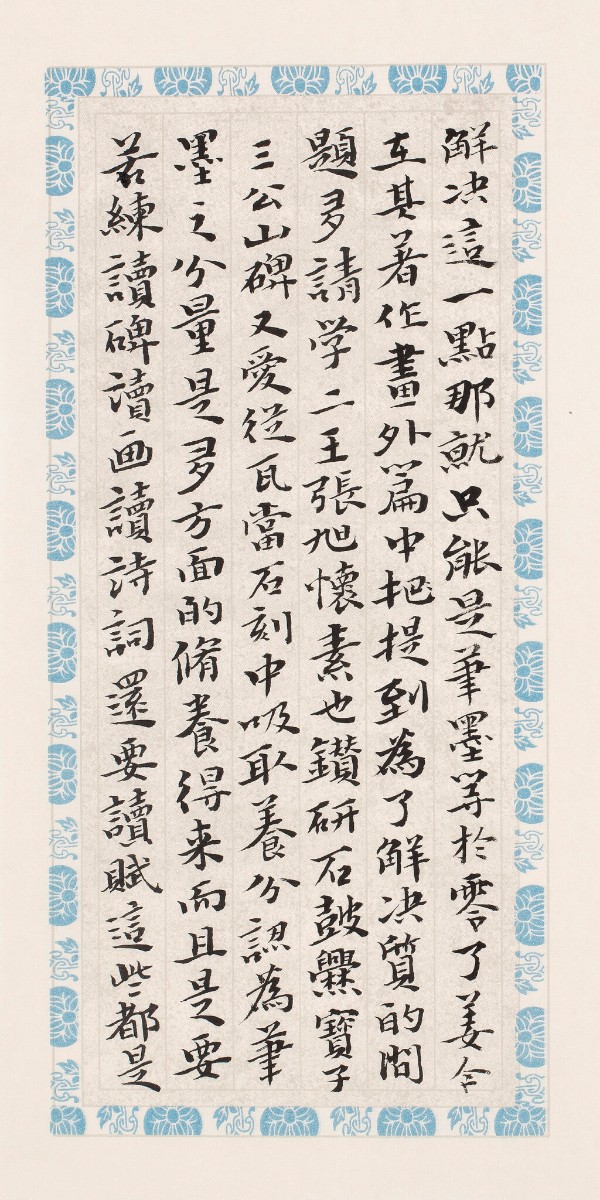 解决這一點那就只能是筆墨等於零了姜今
在其著作畫外篇中把提到為了解决質的問
題多請学二王張旭懷素也鑽研石鼓爨寶子
三公山碑又愛從瓦當石刻中吸取養分認為筆
墨之分量是多方面的脩養得来而且是要
若練讀碑讀画讀詩詞還要讀賦這些都是